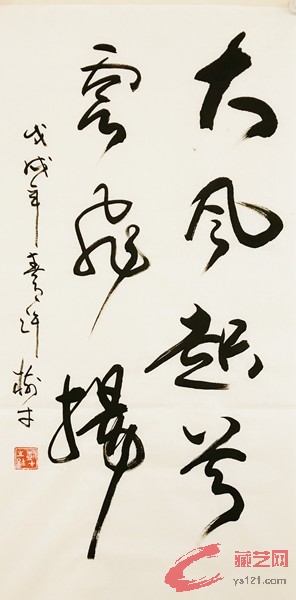 大风起兮
雲飞揚
戊戌年春许樹才
藏艺网
ys121.com